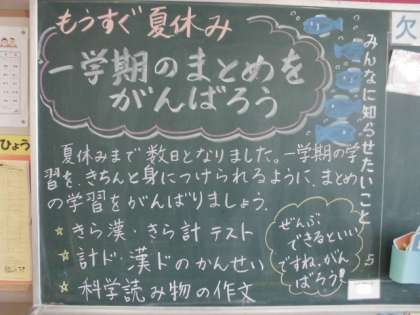 もうすぐ夏休み
一学期のまとめを
がんばろう
みんなに知らせたいこと
夏休みまで数日となりました。一学期の学
習を、きちんと身につけられるように、まとめ
の学習をがんばりましょう。
☆きら漢・きら計 テスト
☆計ド・漢ドのかんせい
☆科学読み物の作文
ぜんぶ
できるといい
ですね。がん
ばろう!
5
欠
ひょう